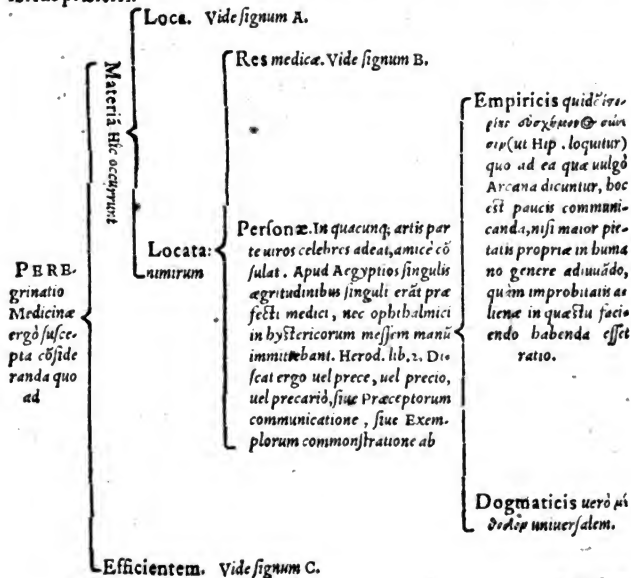 Loca. Vide signum A.
Res medicæ. Vide signum B.
Materiā Hîc occurrunt
Locata:
nimirum
PERE-
grinatio
Medicinæ
ergò suſce-
pta cōſide
randa quo
ad
Perſonæ. In quacunq; artis par
te uiros celebres adeat, amicè cō
ſulat. Apud Aegyptios ſingulis
ægritudinibus ſinguli erāt præ
fecti medici, nec ophthalmici
in hyſtericorum meſſem manū
immittebant. Herod. lib. 2. Di-
ſcat ergo uel prece, uel precio,
uel precariò, ſiue Præceptorum
communicatione, ſiue Exem-
plorum commonſtratione ab
Empiricis quidē
(ut Hip. loquitur)
quo ad ea quæ uulgò
Arcana dicuntur, hoc
eſt paucis communi-
canda, niſi maior pie-
tatis propriæ in huma
no genere adiuuādo,
quàm improbitatis a-
lienæ in quæſtu faci-
endo habenda eſſet
ratio.
Dogmaticis uerò
uniuerſalem.
Efficientem. Vide ſignum C.